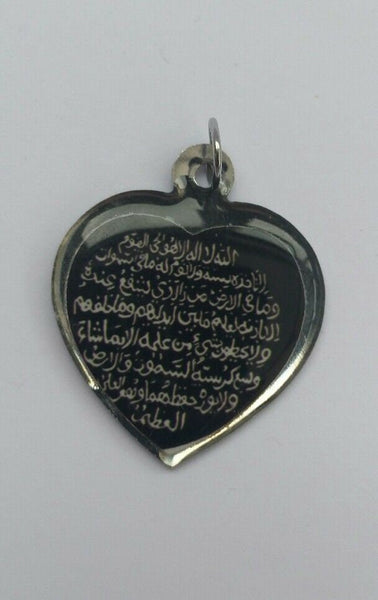 الله لا اله الا هو الحي القيوم
لا تاخذه سنة ولا نوم له ما في السموات
وما في الارض من ذا الذي يشفع عنده
الا باذنه يعلم ما بين ايديهم وما خلفهم
ولا يحيطون بشيء من علمه الا بما شاء
وسع كرسيه السموات والارض
ولا يوده حفظهما وهو العلي
العظيم